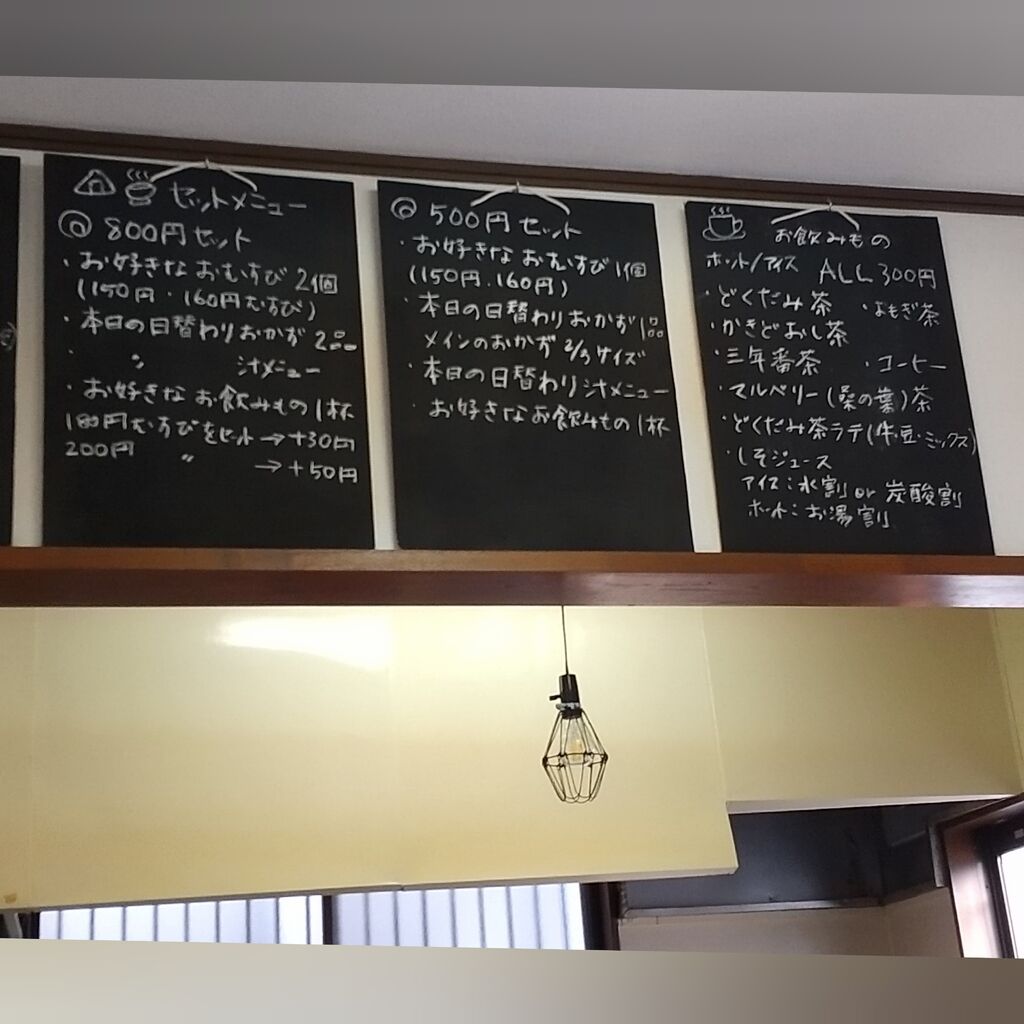 セットメニュー
◎ 800円セット
・お好きなおむすび 2個
(150円・160円むすび)
・本日の日替わりおかず 2品
・ 〃 汁メニュー
・お好きなお飲みもの 1杯
180円むすびをセット→+30円
200円 〃 →+50円
◎ 500円セット
・お好きなおむすび 1個
(150円.160円)
・本日の日替わりおかず 1品
メインのおかず 2/3サイズ
・本日の日替わり汁メニュー
・お好きなお飲みもの 1杯
お飲みもの
ホット/アイス ALL 300円
・どくだみ茶 ・よもぎ茶
・かきどおし茶
・三年番茶 ・コーヒー
・マルベリー(桑の葉)茶
・どくだみ茶ラテ(牛・豆・ミックス)
・しそジュース
アイス:水割 or 炭酸割
ホット:お湯割